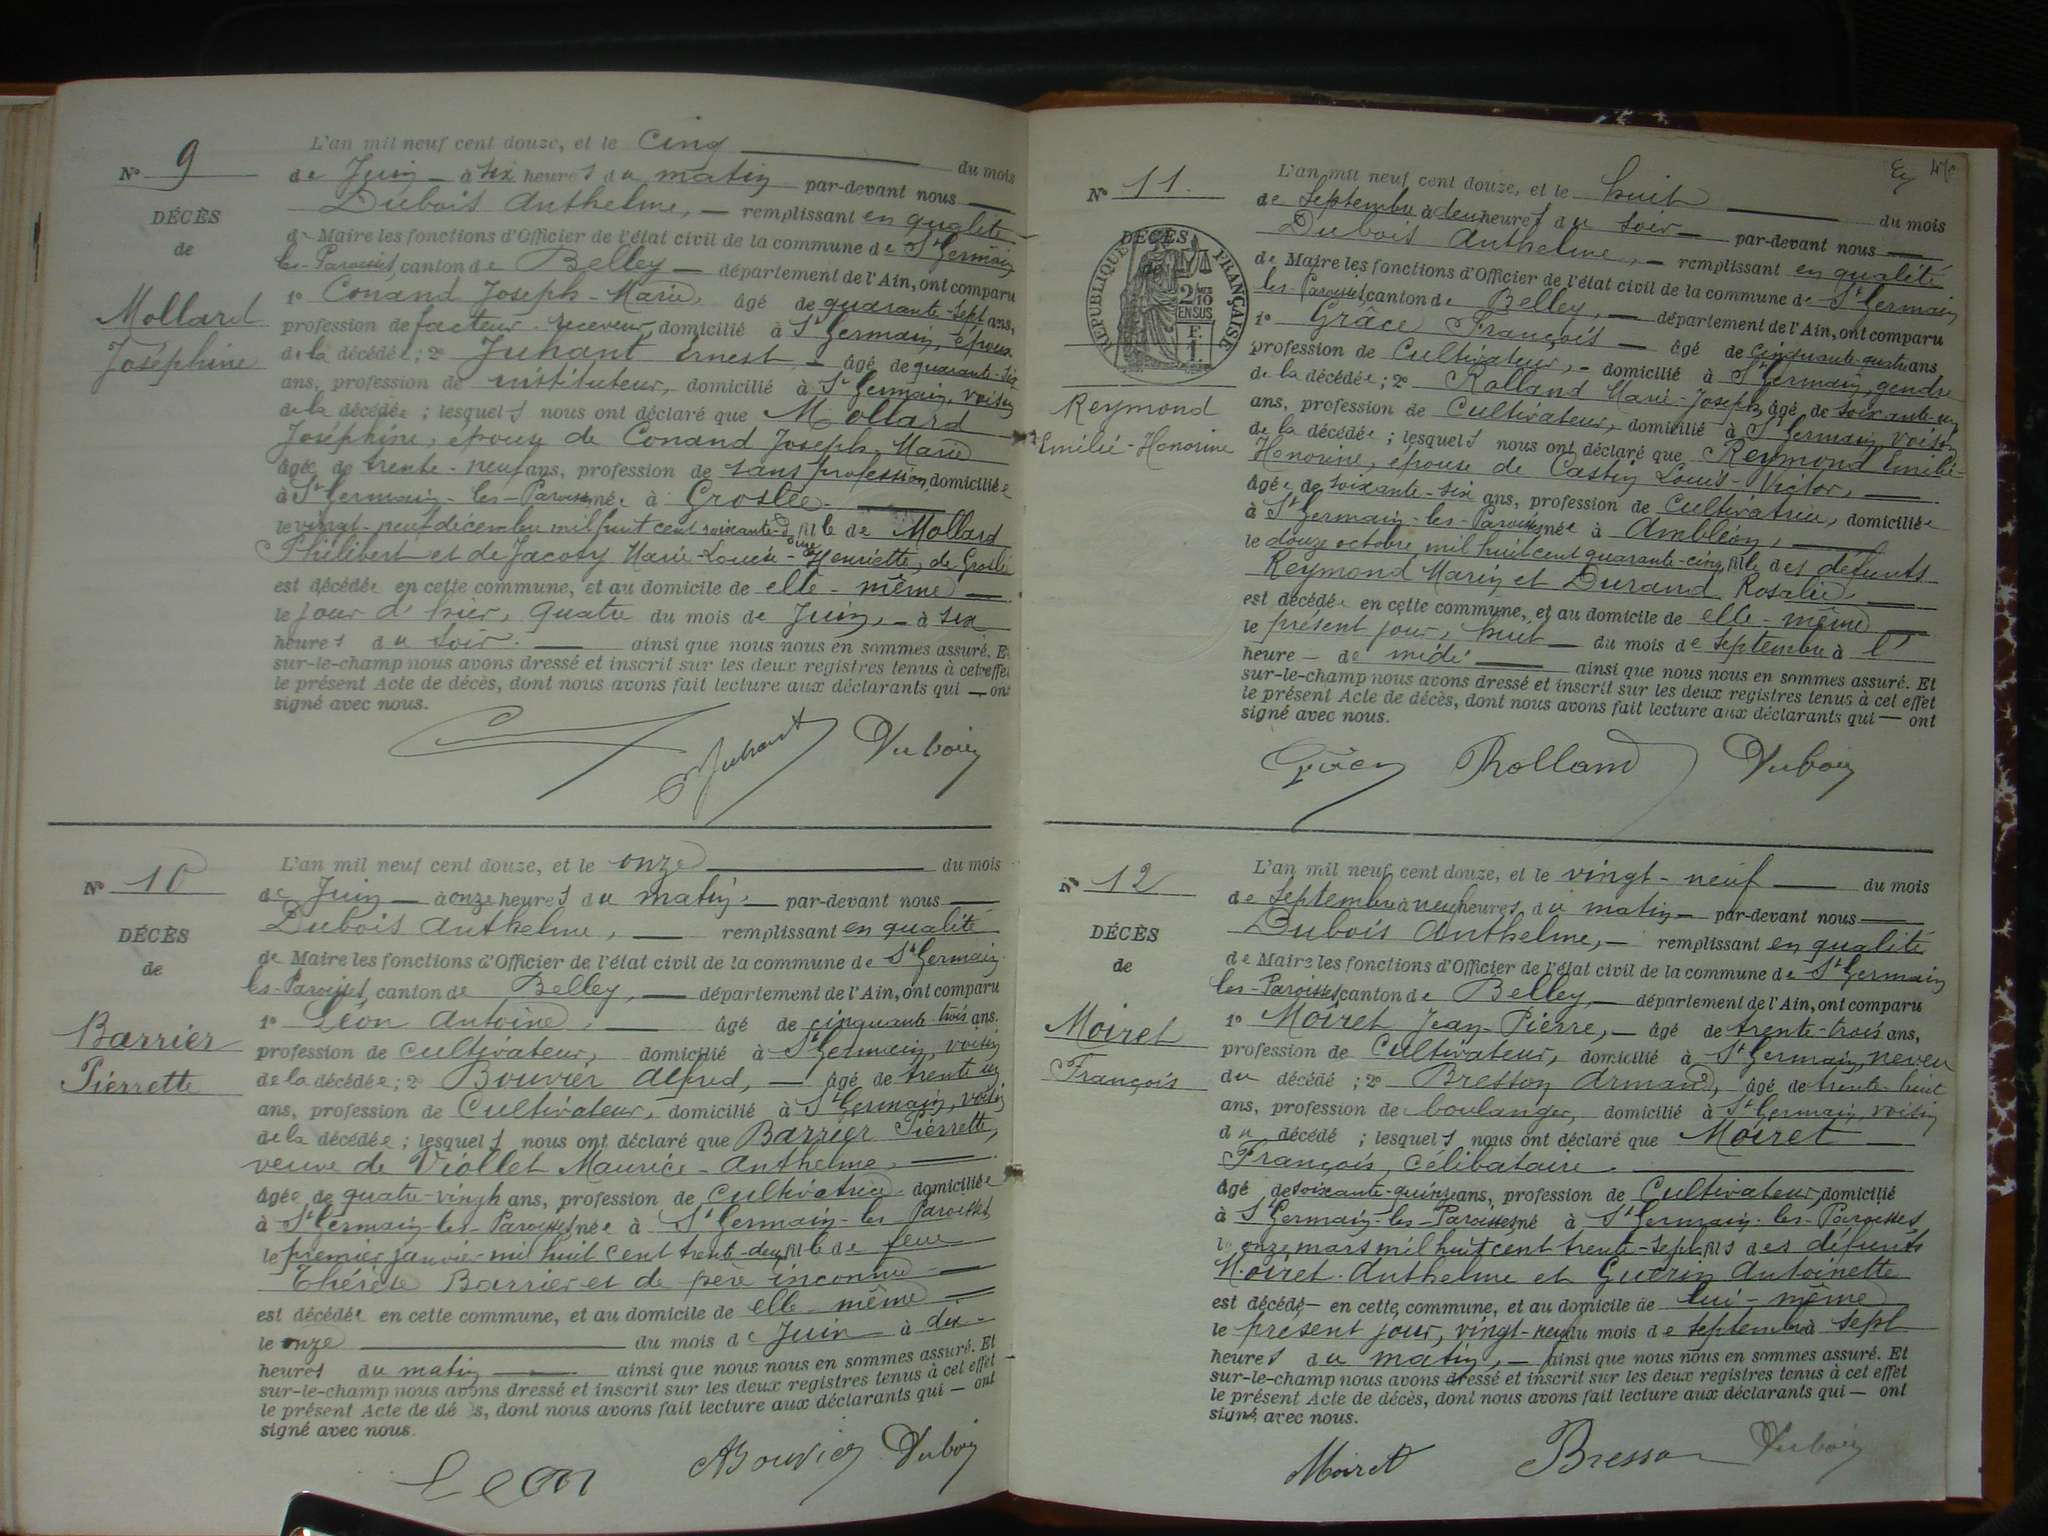 N° 9
DÉCÈS
de
Mollard
Joséphine
L'an mil neuf cent douze, et le cinq du mois
de Juin à six heures du matin par-devant nous
Dubois Anthelme, remplissant en qualité
de Maire les fonctions d'Officier de l'état civil de la commune de St Germain
les-Paroisses, canton de Belley département de l'Ain, ont comparu
1° Conand Joseph-Marie, âgé de quarante-sept ans,
profession de facteur-receveur, domicilié à St Germain, époux
de la décédée ; 2° Juhant Ernest, âgé de quarante-six
ans, profession de instituteur, domicilié à St Germain, voisin
de la décédée ; lesquels nous ont déclaré que Mollard
Joséphine, épouse de Conand Joseph-Marie
âgée de trente-neuf ans, profession de sans profession, domiciliée
à St Germain-les-Paroisses née à Groslée
le vingt-neuf décembre mil huit cent soixante-douze fille de Mollard
Philibert et de Jacoty Marie-Louise-Henriette, de Groslée
est décédée en cette commune, et au domicile de elle-même
le jour d'hier, quatre du mois de Juin, à six
heures du soir. ainsi que nous nous en sommes assuré. Et
sur-le-champ nous avons dressé et inscrit sur les deux registres tenus à cet effet
le présent Acte de décès, dont nous avons fait lecture aux déclarants qui ont
signé avec nous.
Juhant Dubois
N° 10
DÉCÈS
de
Barrier
Pierrette
L'an mil neuf cent douze, et le onze du mois
de Juin à onze heures du matin par-devant nous
Dubois Anthelme, remplissant en qualité
de Maire les fonctions d'Officier de l'état civil de la commune de St Germain
les-Paroisses, canton de Belley, département de l'Ain, ont comparu
1° Léon Antoine, âgé de cinquante-trois ans,
profession de cultivateur, domicilié à St Germain, voisin
de la décédée ; 2° Bouvier Alfred, âgé de trente un
ans, profession de Cultivateur, domicilié à St Germain, voisin
de la décédée ; lesquels nous ont déclaré que Barrier Pierrette,
veuve de Viollet Maurice-Anthelme,
âgée de quatre-vingt ans, profession de Cultivatrice domiciliée
à St Germain-les-Paroisses née à St Germain-les Paroisses
le premier janvier mil huit cent trente-deux fille de feue
Thérèse Barrier et de père inconnu
est décédée en cette commune, et au domicile de elle-même
le onze du mois de Juin à dix
heures du matin ainsi que nous nous en sommes assuré. Et
sur-le-champ nous avons dressé et inscrit sur les deux registres tenus à cet effet
le présent Acte de dé s, dont nous avons fait lecture aux déclarants qui ont
signé avec nous.
Leon ABouvier Dubois
N° 11.
DÉCÈS
de
RÉPUBLIQUE FRANÇAISE
2/10 EN SUS
1 F.
Reymond
Emilie-Honorine
L'an mil neuf cent douze, et le huit du mois
de Septembre à deux heures du soir par-devant nous
Dubois Anthelme, remplissant en qualité
de Maire les fonctions d'Officier de l'état civil de la commune de St Germain
les-Paroisses, canton de Belley, département de l'Ain, ont comparu
1° Grâce François âgé de cinquante-quatre ans
profession de Cultivateur, domicilié à St Germain, gendre
de la décédée ; 2° Rolland Marie-Joseph, âgé de soixante-un
ans, profession de Cultivateur, domicilié à St Germain, voisin
de la décédée ; lesquels nous ont déclaré que Reymond Emilie-
Honorine, épouse de Castin Louis-Victor,
âgée de soixante-six ans, profession de Cultivatrice, domiciliée
à St Germain-les-Paroisses née à Ambléon,
le douze octobre mil huit cent quarante-cinq, fille des défunts
Reymond Marin et Durand Rosalie,
est décédée en cette commune, et au domicile de elle-même
le présent jour, huit du mois de Septembre à l'
heure de midi ainsi que nous nous en sommes assuré. Et
sur-le-champ nous avons dressé et inscrit sur les deux registres tenus à cet effet
le présent Acte de décès, dont nous avons fait lecture aux déclarants qui ont
signé avec nous.
Rolland Dubois
N° 12
DÉCÈS
de
Moiret
François
L'an mil neuf cent douze, et le vingt-neuf du mois
de Septembre à neuf heures du matin par-devant nous
Dubois Anthelme, remplissant en qualité
de Maire les fonctions d'Officier de l'état civil de la commune de St Germain
les-Paroisses, canton de Belley, département de l'Ain, ont comparu
1° Moiret Jean-Pierre, âgé de trente-trois ans,
profession de Cultivateur, domicilié à St Germain, neveu
du décédé ; 2° Bresson Armand, âgé de trente-huit
ans, profession de boulanger, domicilié à St Germain, voisin
du décédé ; lesquels nous ont déclaré que Moiret
François, célibataire.
âgé de soixante-quinze ans, profession de Cultivateur, domicilié
à St Germain-les-Paroisses né à St Germain-les-Paroisses
le onze mars mil huit cent trente-sept fils des défunts
Moiret Anthelme et Guérin Antoinette
est décédé en cette commune, et au domicile de lui-même
le présent jour, vingt-neuf du mois de Septembre à sept
heures du matin, ainsi que nous nous en sommes assuré. Et
sur-le-champ nous avons dressé et inscrit sur les deux registres tenus à cet effet
le présent Acte de décès, dont nous avons fait lecture aux déclarants qui ont
signé avec nous.
Moiret Bresson Dubois